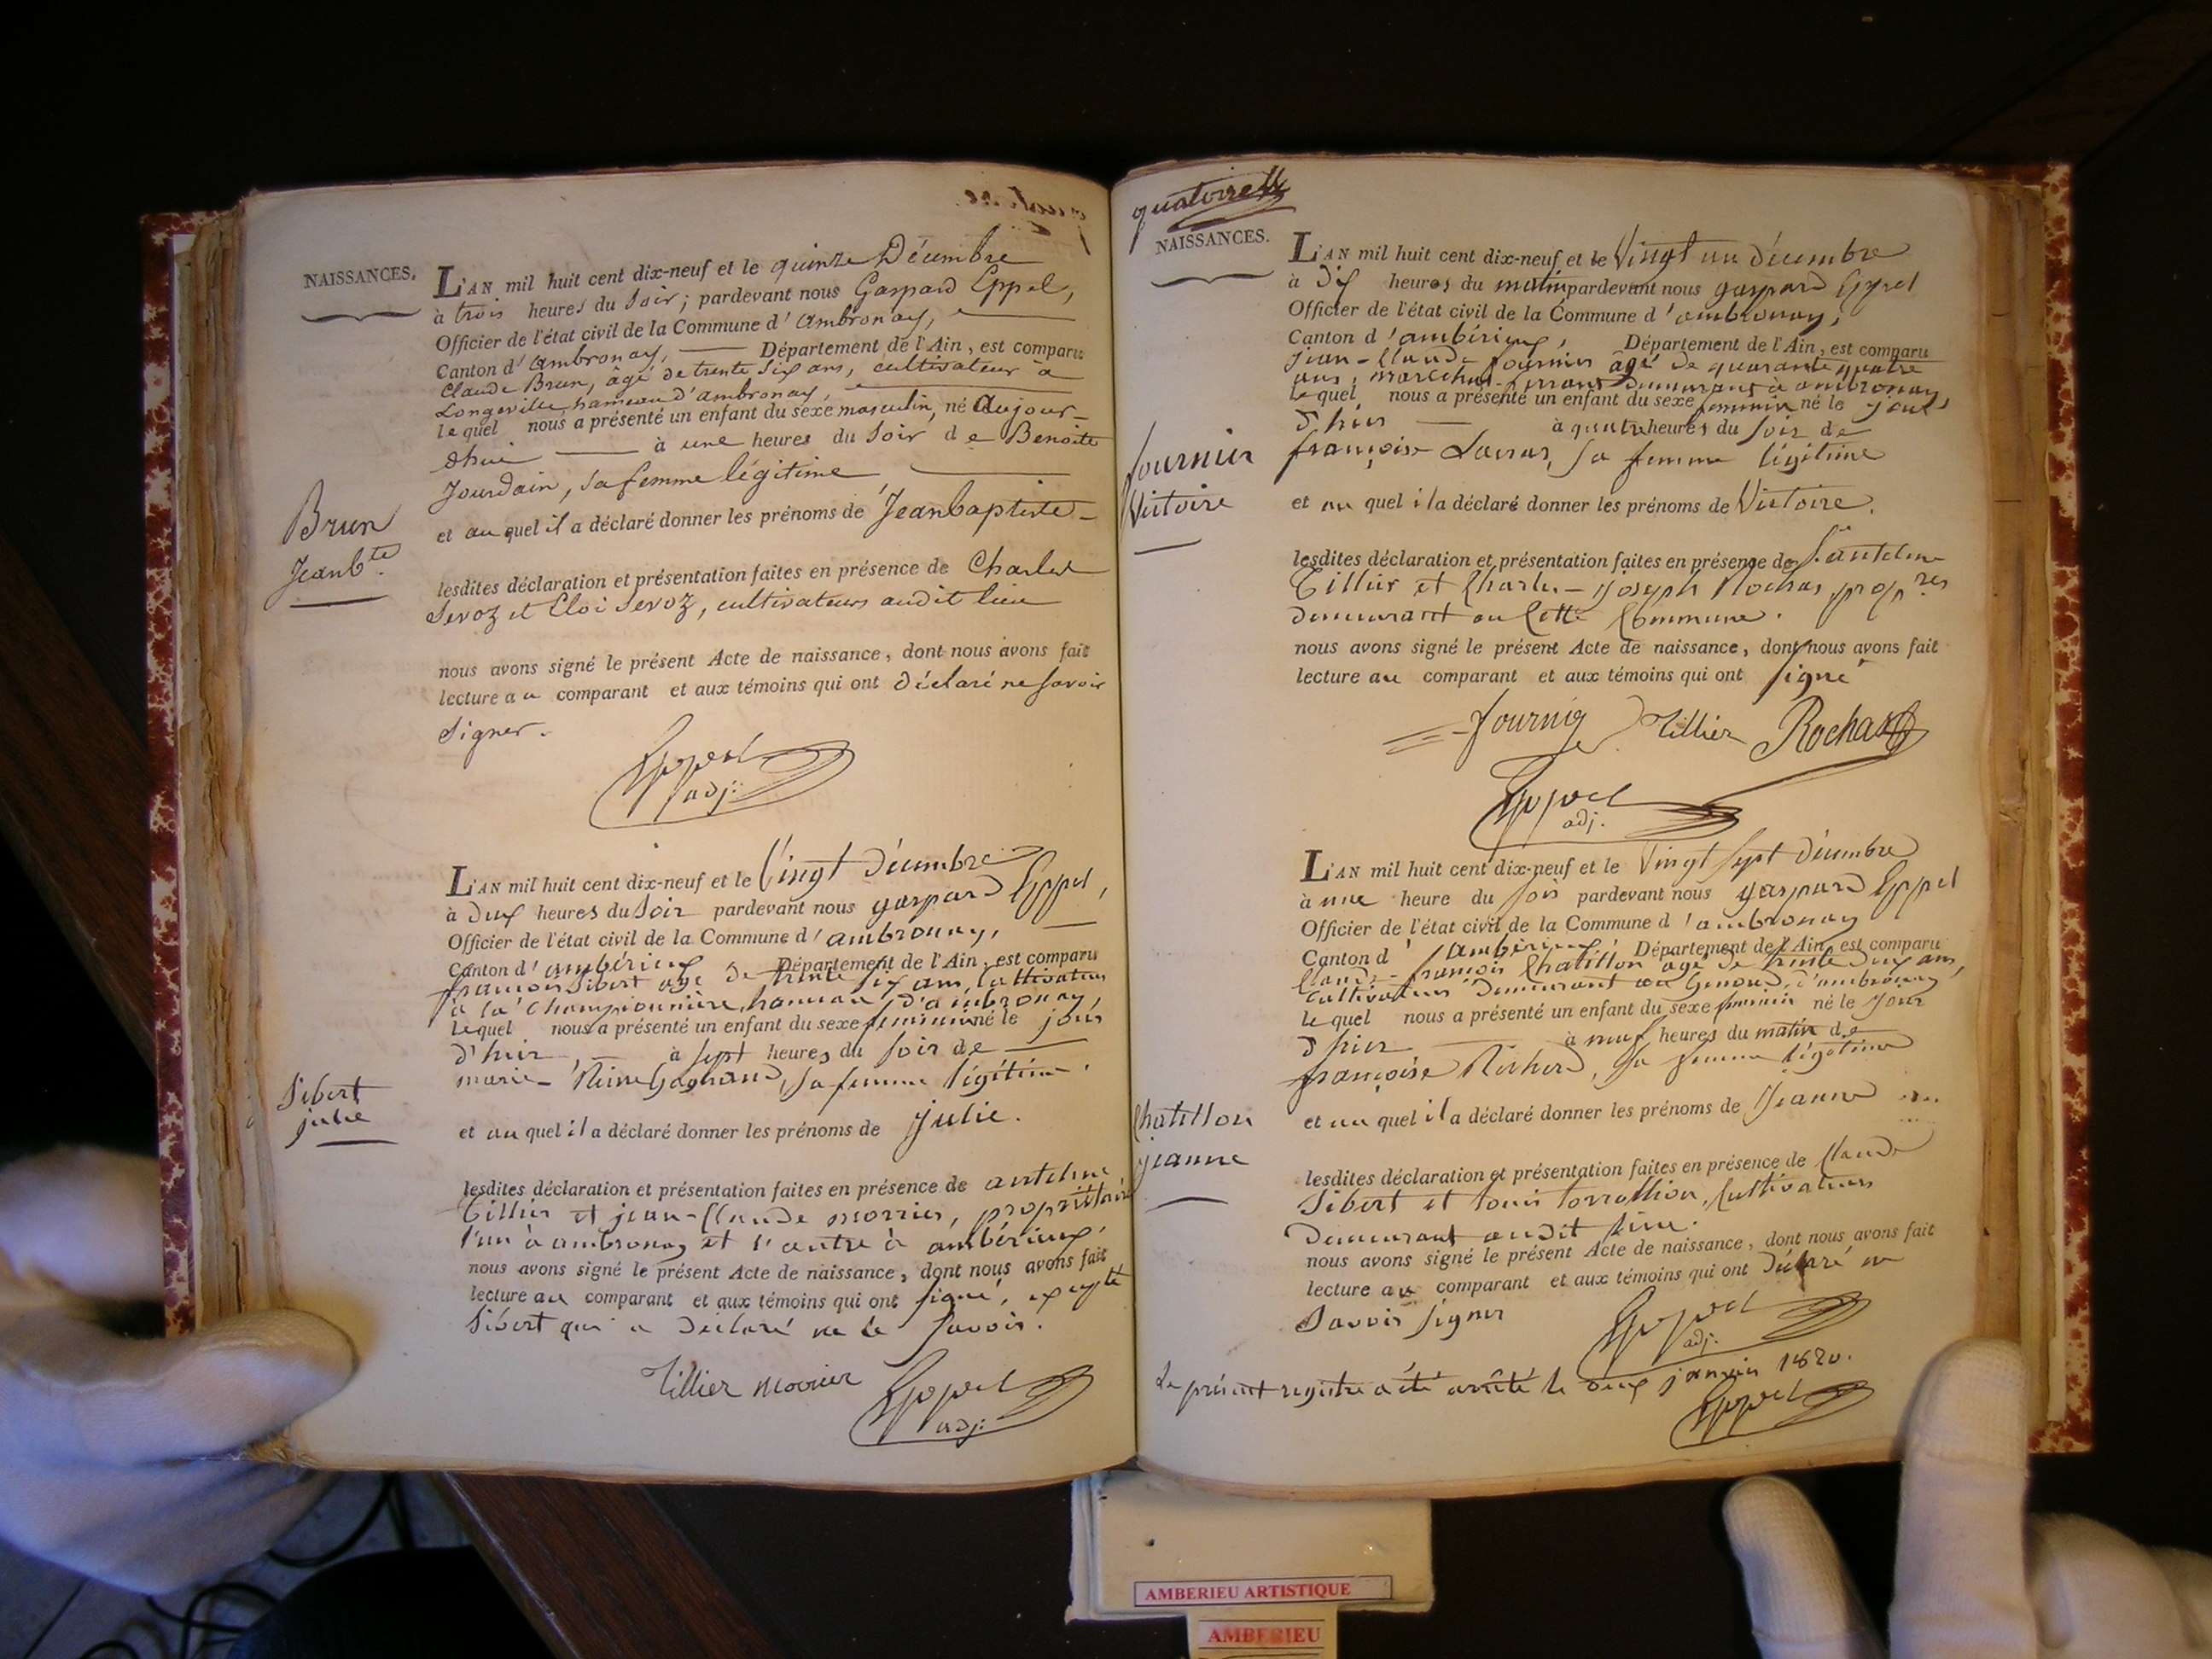 NAISSANCES.
L'AN mil huit cent dix-neuf et le quinze Décembre
à trois heures du Soir ; pardevant nous Gaspard Eppel,
Officier de l'état civil de la Commune d'Ambronay,
Canton d'Ambronay, Département de l'Ain, est comparu
Claude Brun, âgé de trente six ans, cultivateur à
Longeville hameau d'ambronay,
lequel nous a présenté un enfant du sexe masculin, né Aujour-
dhui à une heures du Soir de Benoite
Jourdain, sa femme légitime
Brun
Jean bte.
et au quel il a déclaré donner les prénoms de Jean baptiste
lesdites déclaration et présentation faites en présence de Charles
Servoz et Eloi Servoz, cultivateurs audit lieu
nous avons signé le présent Acte de naissance, dont nous avons fait
lecture au comparant et aux témoins qui ont déclaré ne savoir
signer.
Eppel
adj:
L'AN mil huit cent dix-neuf et le Vingt décembre
à deux heures du Soir pardevant nous gaspard Eppel,
Officier de l'état civil de la Commune d'ambronay,
Canton d'ambérieux Département de l'Ain, est comparu
françois Sibert âgé de trente six ans, Cultivateur
à la Championnière, hameau d'ambronay,
lequel nous a présenté un enfant du sexe feminin né le jour
d'hier, à sept heures du Soir de
marie-Reine, sa femme légitime.
Sibert
julie
et au quel il a déclaré donner les prénoms de Julie.
lesdites déclaration et présentation faites en présence de antelme
Tillier et jean-Claude morrier, propriétaires
l'un à ambronay et l'autre à ambérieux,
nous avons signé le présent Acte de naissance, dont nous avons fait
lecture au comparant et aux témoins qui ont signé, excepté
Sibert qui a déclaré ne le savoir.
Tillier morrier Eppel
adj:
quatorze
NAISSANCES.
L'AN mil huit cent dix-neuf et le Vingt un décembre
à dix heures du matin pardevant nous gaspard Eppel
Officier de l'état civil de la Commune d'ambronay,
Canton d'ambérieux, Département de l'Ain, est comparu
jean-Claude fournier âgé de quarante quatre
ans, marechal-ferrant demeurant à ambronay,
lequel nous a présenté un enfant du sexe feminin né le jour
d'hier à quatre heures du Soir de
françoise, sa femme légitime
fournier
Victoire
et au quel il a déclaré donner les prénoms de Victoire.
lesdites déclaration et présentation faites en présence de antelme
Tillier et Charles-joseph Rochas propres
demeurant en Cette Commune.
nous avons signé le présent Acte de naissance, dont nous avons fait
lecture au comparant et aux témoins qui ont signé
fournier Tillier Rochas
Eppel
adj.
L'AN mil huit cent dix-neuf et le Vingt sept décembre
à une heure du soir pardevant nous gaspard Eppel
Officier de l'état civil de la Commune d'ambronay
Canton d'ambérieux, Département de l'Ain, est comparu
Claude-françois Chatillon âgé de trente deux ans,
Cultivateur demeurant au Genoud, d'ambronay
lequel nous a présenté un enfant du sexe feminin né le jour
d'hier à neuf heures du matin de
françoise, sa femme légitime
Chatillon
jeanne
et au quel il a déclaré donner les prénoms de Jeanne
lesdites déclaration et présentation faites en présence de Claude
Sibert et Louis, Cultivateurs
demeurant audit lieu.
nous avons signé le présent Acte de naissance, dont nous avons fait
lecture au comparant et aux témoins qui ont déclaré ne
Savoir signer
Eppel
adj.
Le présent registre a été arrêté le deux janvier 1820.
Eppel
AMBERIEU ARTISTIQUE
AMBERIEU